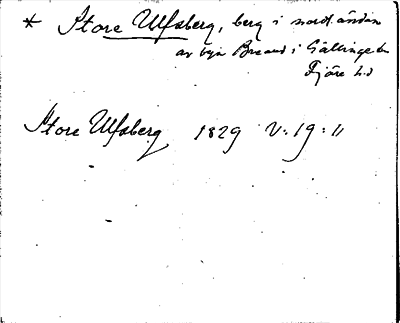 * Store Ulfsberg, berg i nordändan
av byn Breared i Gällinge sn
Fjäre hd
Store Ulfsberg 1829 V:19:11